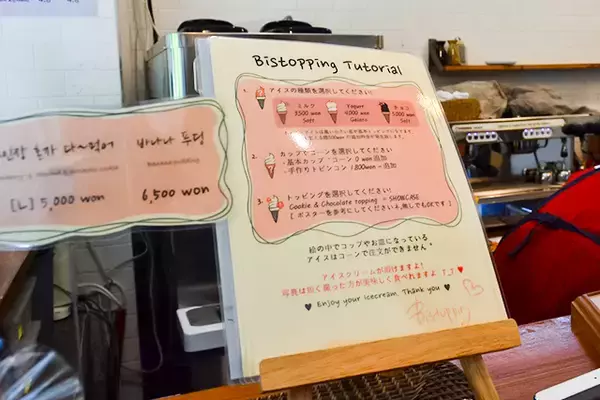 Bistopping Tutorial
1. アイスの種類を選択してください!
ミルク
3500 won
Soft
Yogurt
4,000 won
Gelato
チョコ
5,000 won
Soft
2. カップやコーンを選択してください
・基本カップ・コーン 0 won 追加
・手作りトピンコン 1,800won 追加
3. トッピングを選択してください!
Cookie & Chocolate topping = SHOWCASE
[ ポスターを参考にしてください↓,無しでもOKです ]
絵の中でコップやお皿になっている
アイスはコーンで注文ができません
アイスクリームが溶けますよ!
写真は如く撮った方が美味しく食べれますよ T_T ♥
♥ Enjoy your icecream Thank you ♥
바나나 푸딩
Banana pudding
[L] 5,000 won
6,500 won